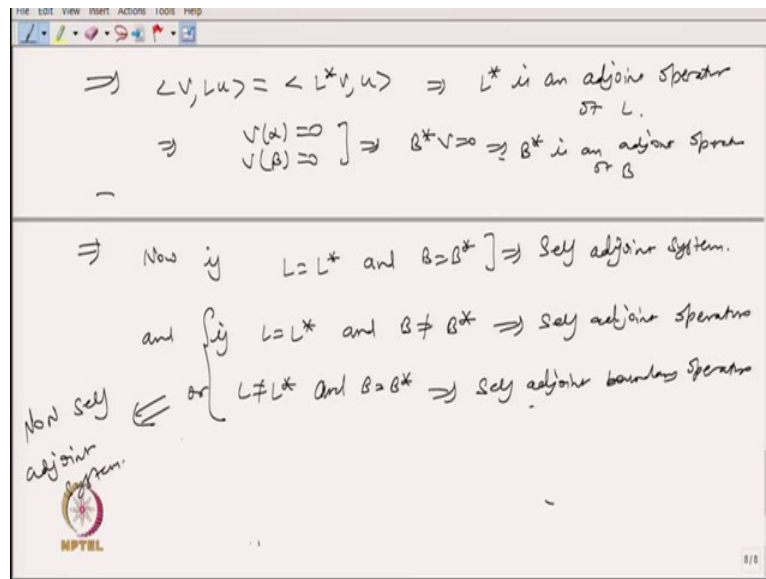 File Edit View Insert Actions Tools Help
⇒ <v, Lu> = <L*v, u> ⇒ L* is an adjoint operator
of L.
⇒ v(α)=0
v(β)=0 ] ⇒ B*v=0 ⇒ B* is an adjoint operator
of B
⇒ Now if L=L* and B=B* ] ⇒ Self adjoint system.
and { if L=L* and B≠B* ⇒ Self adjoint operator
or { L≠L* and B=B* ⇒ Self adjoint boundary operator
Non self
adjoint
system.
NPTEL
8/8